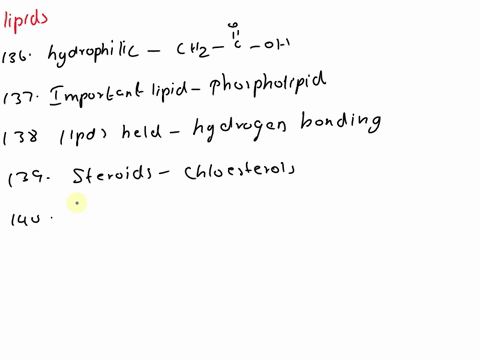 lipids
136. hydrophilic - CH2 - C - OH
O
137. Important lipid - Phospholipid
138 lipds held - hydrogen bonding
139. Steroids - Chloesterols
140.